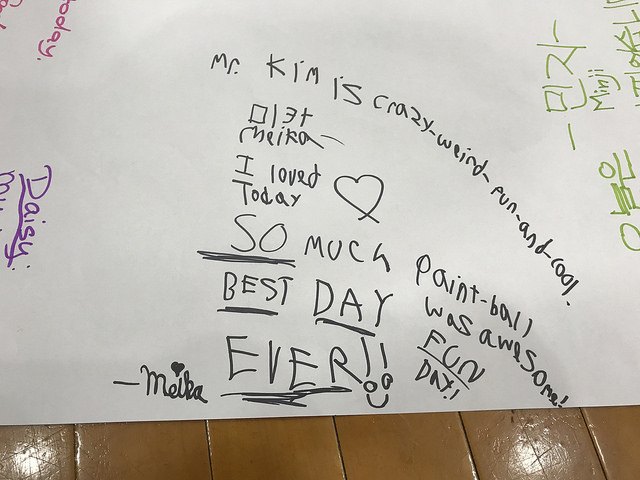 today.
Mr. Kim is crazy-weird-fun-and-cool.
미카
Meika-
I loved
Today
SO MUCH
BEST DAY
EVER!!
-Meika
Paint-ball
was awesome!
FUN
DAY!
Daisy:
-민지-
Minji
오늘은